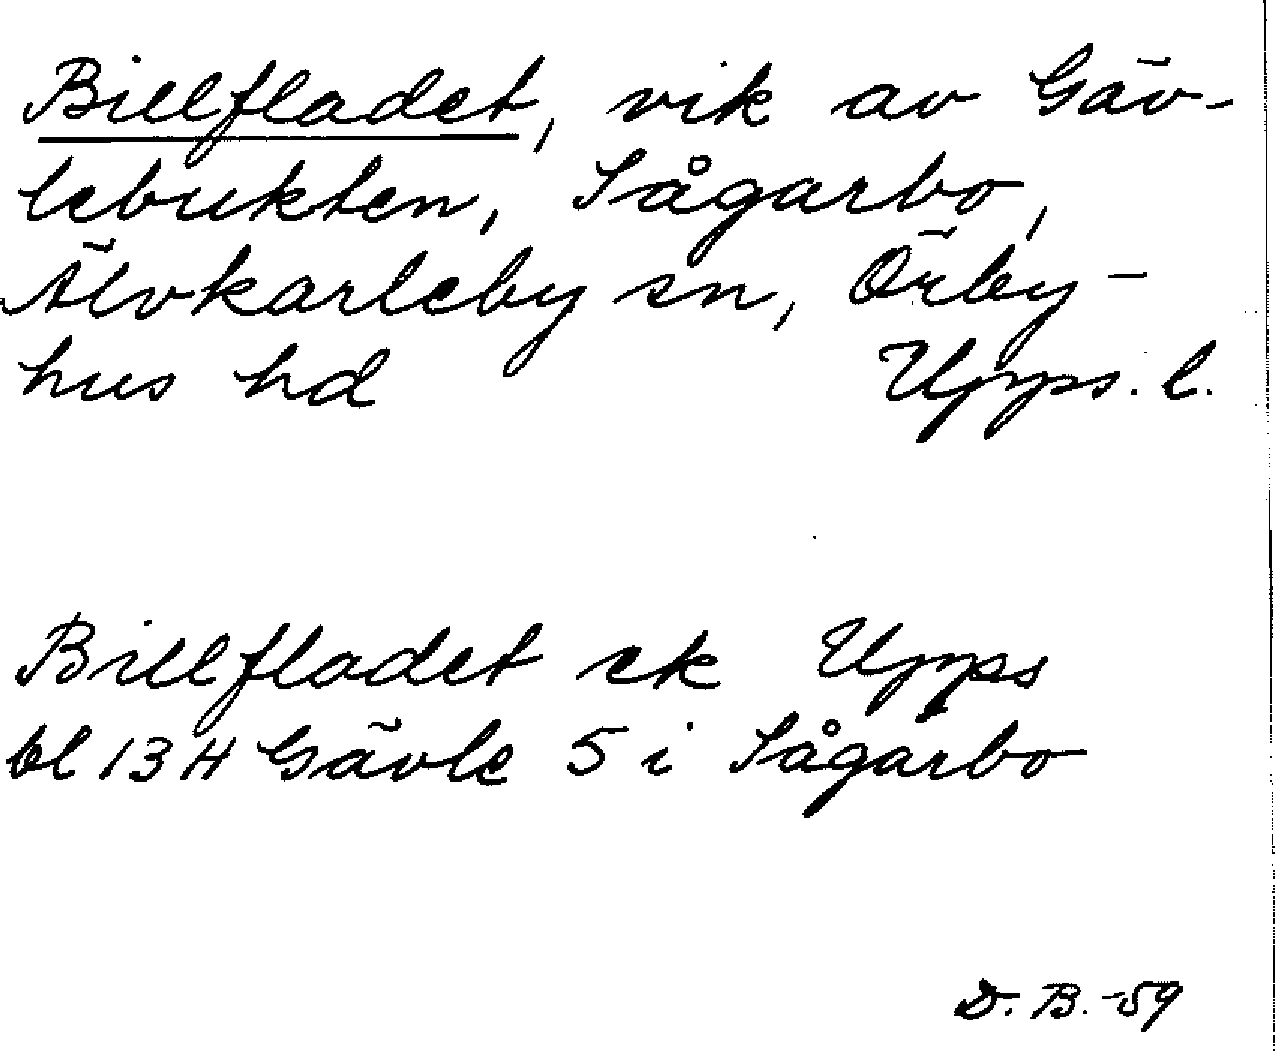 Billfladet, vik av Gäv-
lebukten, Sågarbo,
Älvkarleby sn, Örby-
hus hd Upps. l.
Billfladet ek Upps
bl 13 H Gävle 5 i Sågarbo
D. B. -59